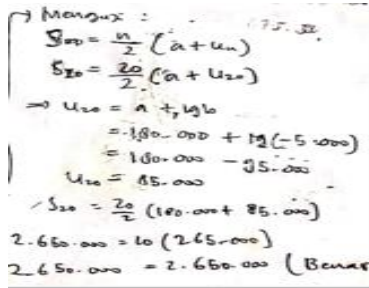 → Mengux :
S₂₀ = n/2 (a + Un)
S₂₀ = 20/2 (a + U₂₀)
⇒ U₂₀ = a + 19b
= 180.000 + 19(-5.000)
= 180.000 - 95.000
U₂₀ = 85.000
S₂₀ = 20/2 (180.000 + 85.000)
2.650.000 = 10 (265.000)
2.650.000 = 2.650.000 (Benar